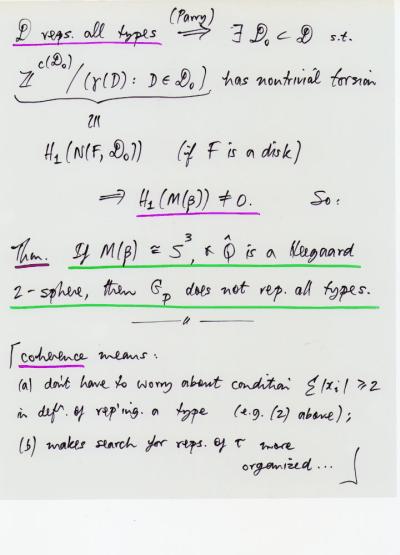 (Parry)
𝒟 reps. all types ⟹ ∃ 𝒟₀ ⊂ 𝒟 s.t.
ℤ^{c(𝒟₀)}/(γ(D) : D ∈ 𝒟₀) has nontrivial torsion
≅
H₁(N(F, 𝒟₀)) (if F is a disk)
⟹ H₁(M(β)) ≠ 0. So:
Thm. If M(β) ≅ S³, & Q̂ is a Heegaard
2-sphere, then G_P does not rep. all types.
⌈coherence means:
(a) don't have to worry about condition Σ|x_i| ≥ 2
in defⁿ. of rep'ing. a type (e.g. (2) above);
(b) makes search for reps. of τ more
organized... ⌋